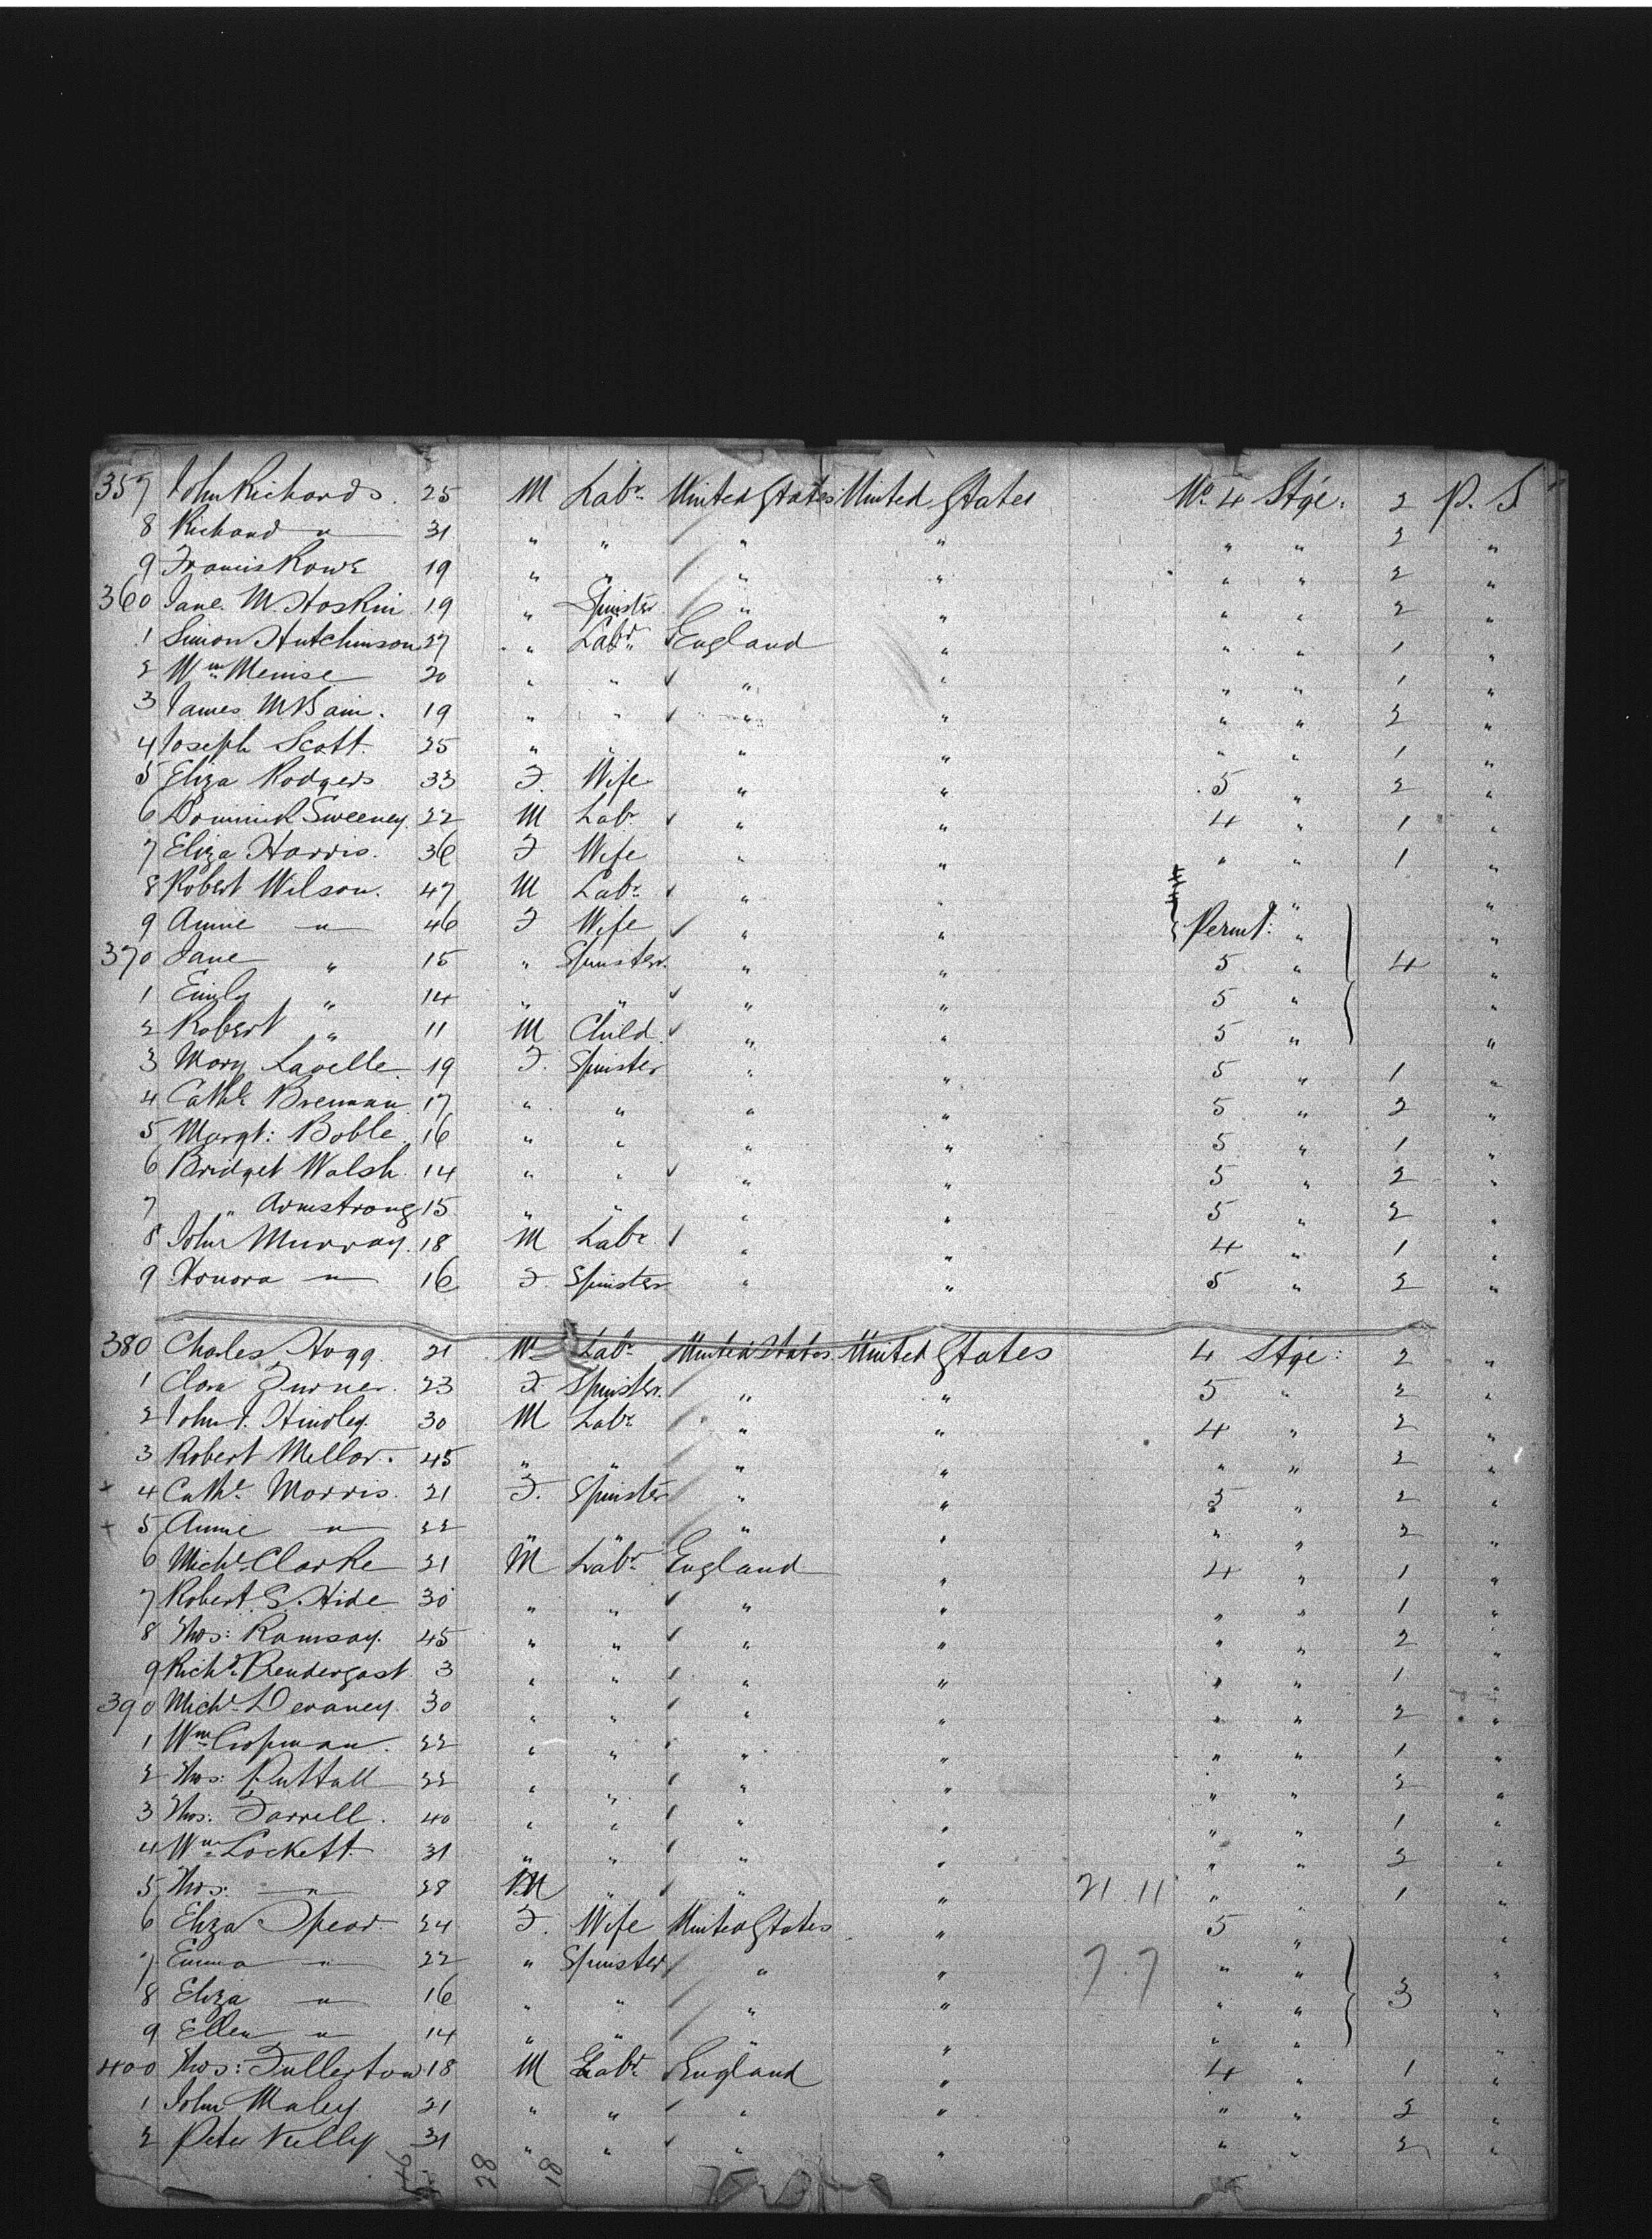 357 John Richards. 25 M Labr. United States United States No. 4 Stge: 2 P. S
8 Richard " 31 " " " " " " 2 "
9 Francis Rowe 19 " " " " " " 2 "
360 Jane M Hoskin 19 " Spinster " " " " 2 "
1 Simon Hutchinson 27 " Labr. England " " " 1 "
2 Wm 20 " " " " " " 1 "
3 James McBain. 19 " " " " " " 2 "
4 Joseph Scott. 25 " " " " " " 1 "
5 Eliza Rodgers 33 F. Wife " " 5 " 2 "
6 Dominick Sweeney. 22 M Labr " " 4 " 1 "
7 Eliza Harris. 36 F Wife " " " " 1 "
8 Robert Wilson. 47 M Labr. " " " "
9 Annie " 46 F Wife " " Permt: " "
370 Jane " 15 " Spinster. " " 5 " 4 "
1 Emily " 14 " " " " 5 " "
2 Robert " 11 M Child " " 5 " "
3 Mary Lavelle. 19 F. Spinster " " 5 " 1 "
4 Cathe Brennan 17 " " " " 5 " 2 "
5 Margt: Boble. 16 " " " " 5 " 1 "
6 Bridget Walsh 14 " " " " 5 " 2 "
7 " Armstrong 15 " " " " 5 " 2 "
8 John Murray. 18 M Labr " " 4 " 1 "
9 Honora " 16 F. Spinster " " 5 " 2 "
380 Charles Hogg. 21 M Labr United States United States 4 Stge: 2 "
1 Clara Turner. 23 F. Spinster. " " 5 " 2 "
2 John J. Hindley. 30 M Labr " " 4 " 2 "
3 Robert Mellor. 45 " " " " " " 2 "
+ 4 Cathe. Morris. 21 F. Spinster " " 5 " 2 "
+ 5 Annie " 22 " " " " " " 2 "
6 Michl. Clarke 21 M Labr. England " 4 " 1 "
7 Robert S. Hide 30 " " " " " " 1 "
8 Thos: Ramsay. 45 " " " " " " 2 "
9 Richd. Prendergast 3 " " " " " " 1 "
390 Michl. Devaney. 30 " " " " " " 2 "
1 Wm 22 " " " " " " 1 "
2 Thos: 22 " " " " " " 2 "
3 Thos: Farrell. 40 " " " " " " 1 "
4 Wm Lockett. 31 " " " " " " 2 "
5 Thos: " 28 M " " " 21.11 " " 1 "
6 Eliza Spear 24 F. Wife United States " 5 " "
7 Emma " 22 " Spinster " " 7.7 " " "
8 Eliza " 16 " " " " " " 3 "
9 Ellen " 14 " " " " " " "
400 Thos: Fullerton 18 M Labr. England " 4 " 1 "
1 John Maley 21 " " " " " " 2 "
2 Peter Kelly 31 " " " " " " 2 "
28 18